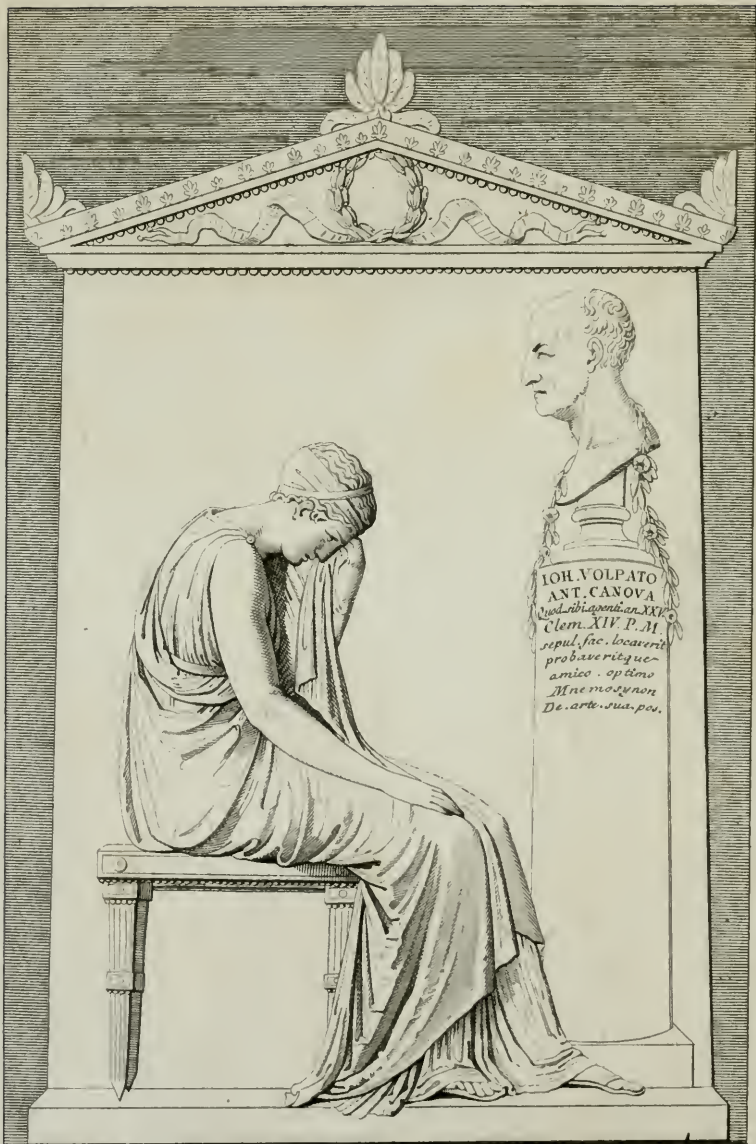 IOH. VOLPATO
ANT. CANOVA
Quod.sibi.agenti.an.XXV.
Clem. XIV. P. M.
sepul. fac. locaverit
probaveritque
amico . optimo
Mnemosynon
De. arte. sua. pos.